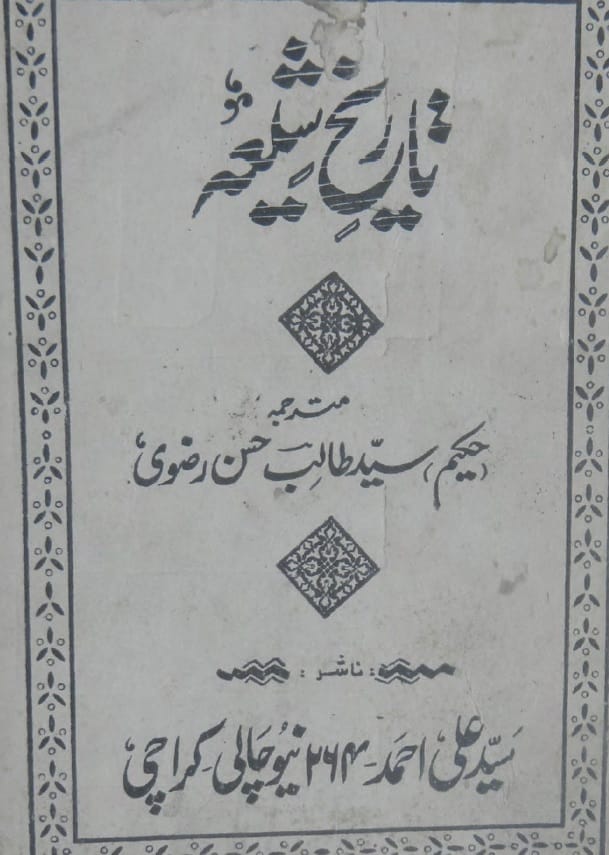 تاریخِ شیعہ
مترجمہ
(حکیم) سیّد طالب حسن رضوی
: ناشر :
سیّد علی احمد۔ ۲۶۴ نیو چالی۔ کراچی